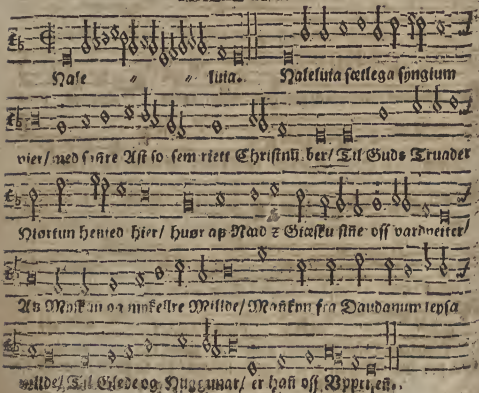 Hale " " luia. Haleluia sætlega syngium
vier/ med sannre Ast so sem riett Christnū ber/ Til Guds Truader
Hiortun hented hier/ huør ap Naad z Giæsku sinne oss vardueiter/
Ab Myskun og mykellre Millde/ Mañkyn fra Daudanum leysa
villde/ Til Glede og Huggunar/ er hañ oss Vpprisen.